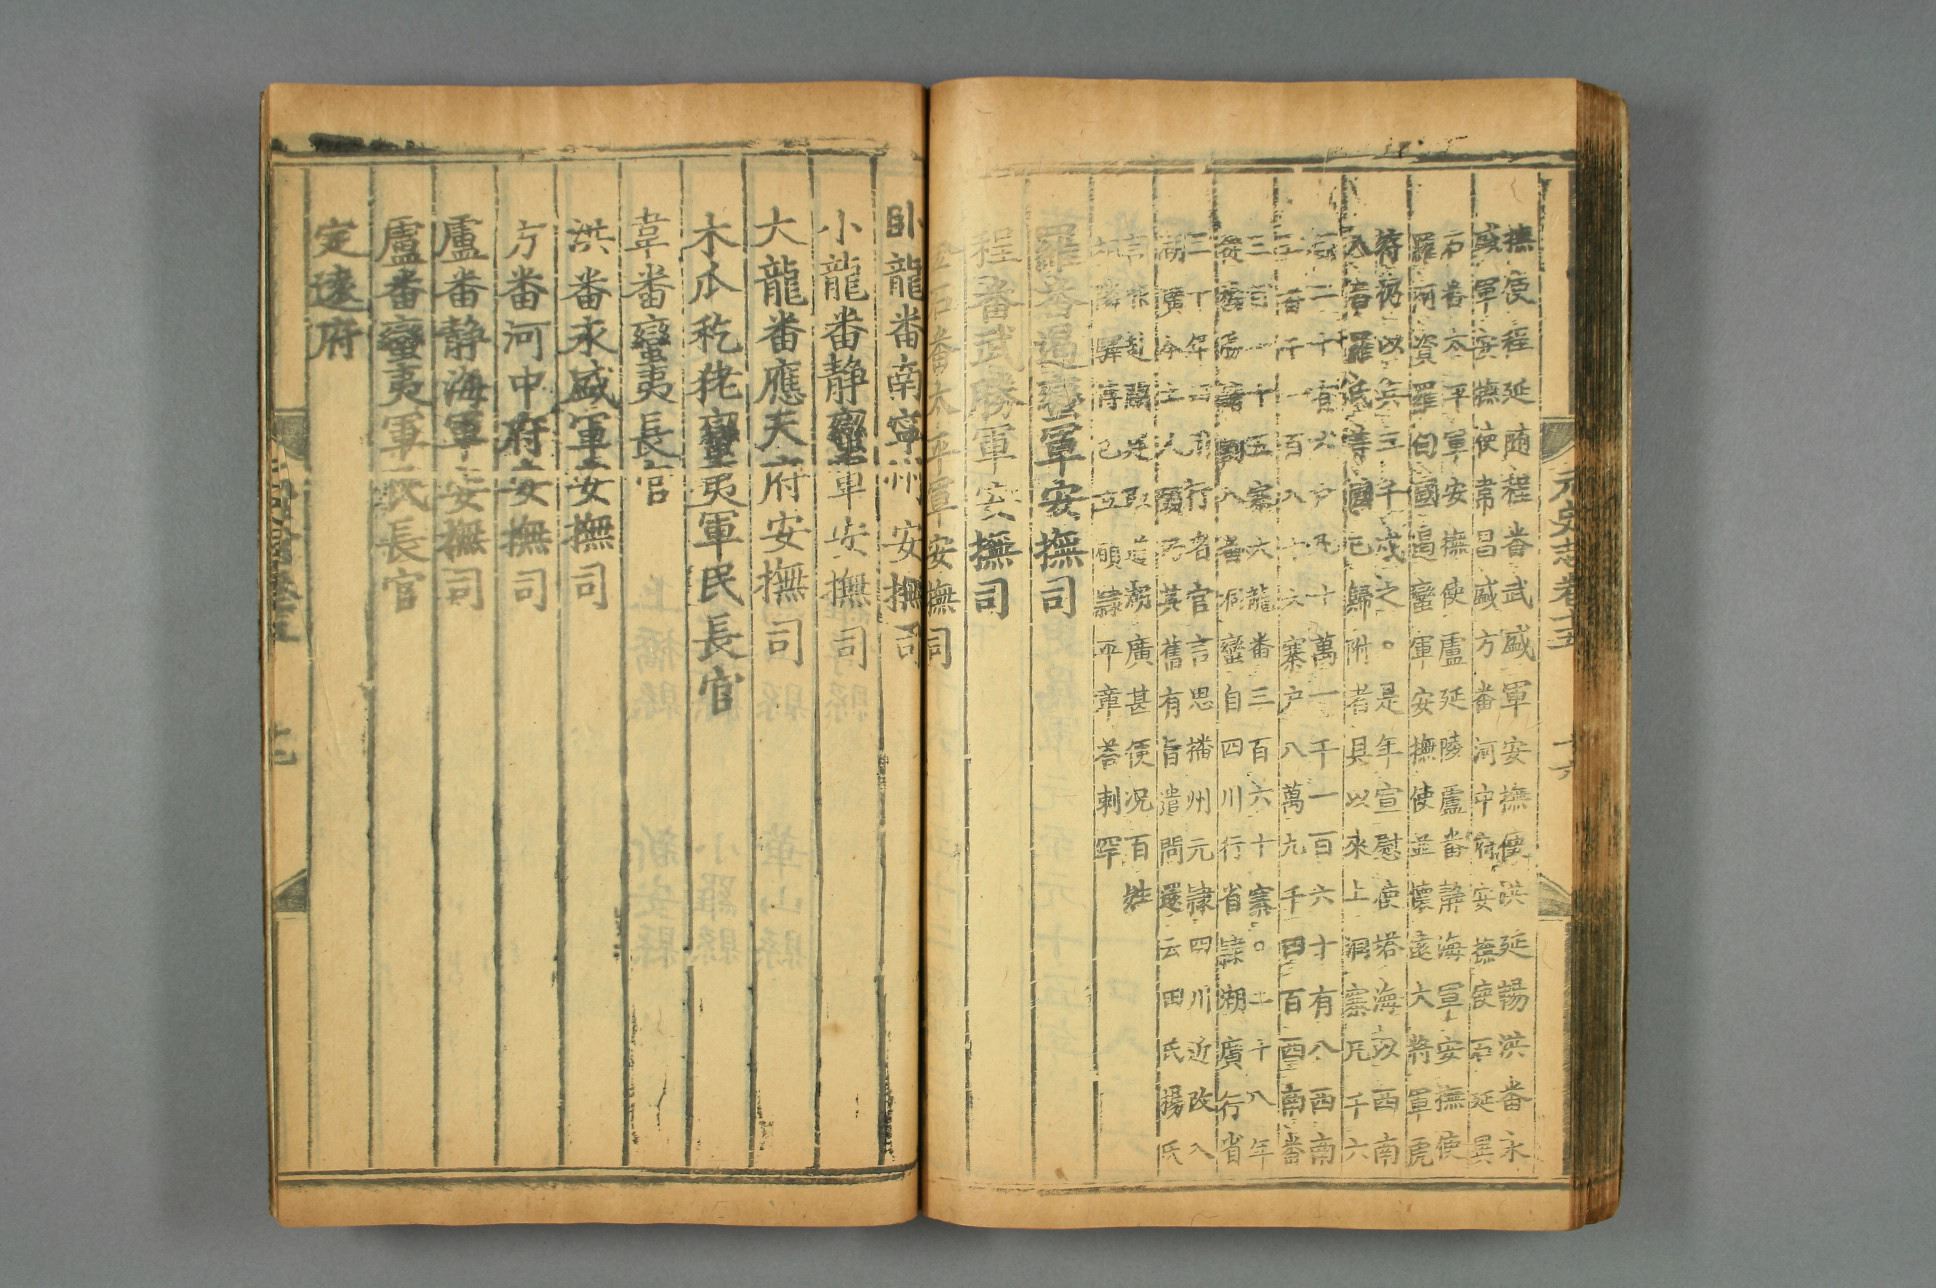 元史志卷十五
十六
撫使程延随程番武盛軍安撫使洪延暢洪番永
盛軍安撫使韋昌盛方番河中府安撫使石延異
石番太平軍安撫使盧延陵盧番静海軍安撫使
羅阿資羅甸國遏蠻軍安撫使並懷遠大將軍虎
符仍以兵三千戍之。是年宣慰使塔海以西南
八番羅氏等國已歸附者具以來上洞寨凡千六
百二十有六户凡十萬一千一百六十有八西南
五番千一百八十六寨户八萬九千四百西南番
三百一十五寨六龍番三百六十寨。二十八年
從楊勝請割八番洞蠻自四川行省隷湖廣行省
三十年四川行省官言思播州元隷四川近改入
湖廣今土人願仍其舊有旨遣問還云田氏楊氏
言昨赴闕廷取道湖廣甚便况百姓
相隣驛傳已立願隷平章荅剌罕
羅番遏蠻軍安撫司
程番武勝軍安撫司
金石番太平軍安撫司
卧龍番南寧州安撫司
小龍番静蠻軍安撫司
大龍番應天府安撫司
木瓜犵狫蠻夷軍民長官
韋番蠻夷長官
洪番永盛軍安撫司
方番河中府安撫司
盧番静海軍安撫司
盧番蠻夷軍民長官
定遠府